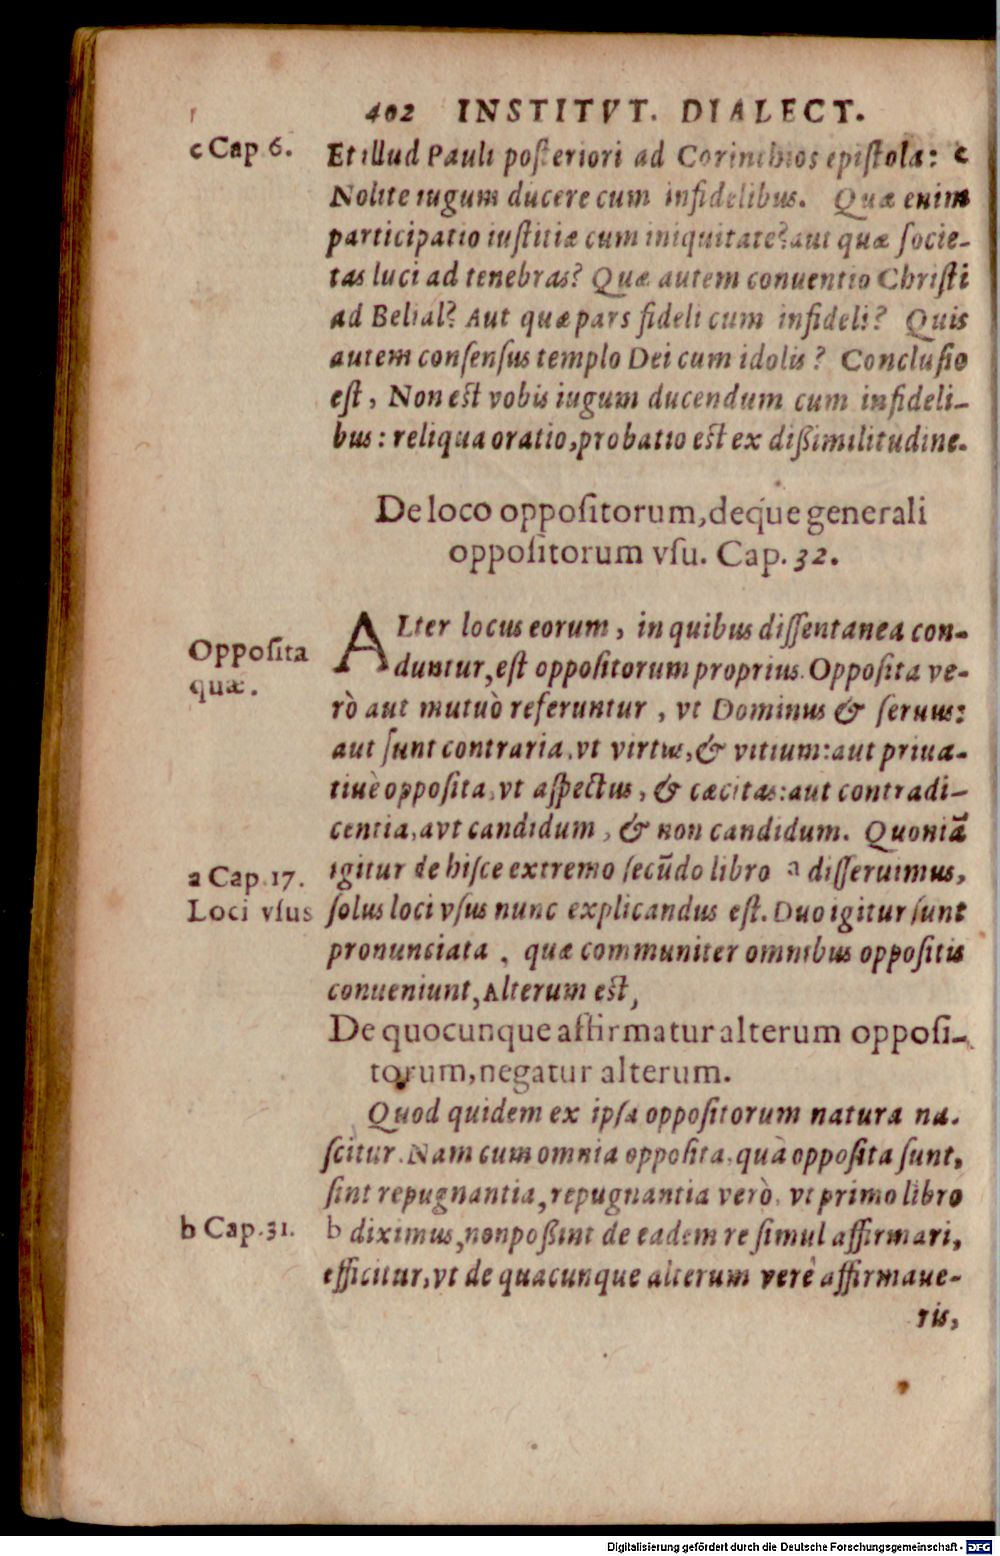 402 INSTITVT. DIALECT.
c Cap 6.
Et illud Pauli posteriori ad Corinthios epistola: c
Nolite iugum ducere cum infidelibus. Quæ enim
participatio iustitiæ cum iniquitate? aut quæ socie-
tas luci ad tenebras? Quæ autem conuentio Christi
ad Belial? Aut quæ pars fideli cum infideli? Quis
autem consensus templo Dei cum idolis? Conclusio
est, Non est vobis iugum ducendum cum infideli-
bus: reliqua oratio, probatio est ex dißimilitudine.
De loco oppositorum, deque generali
oppositorum vsu. Cap. 32.
Opposita
quæ.
ALter locus eorum, in quibus dissentanea con-
duntur, est oppositorum proprius. Opposita ve-
rò aut mutuò referuntur, vt Dominus & seruus:
aut sunt contraria, vt virtus, & vitium: aut priua-
tiuè opposita, vt aspectus, & cæcitas: aut contradi-
centia, avt candidum, & non candidum. Quoniā
igitur de hisce extremo secūdo libro a disseruimus,
a Cap. 17.
Loci vsus
solus loci vsus nunc explicandus est. Duo igitur sunt
pronunciata, quæ communiter omnibus oppositis
conueniunt, Alterum est,
De quocunque affirmatur alterum opposi-
torum, negatur alterum.
Quod quidem ex ipsa oppositorum natura na-
scitur. Nam cum omnia opposita, quà opposita sunt,
sint repugnantia, repugnantia verò, vt primo libro
b Cap. 31.
b diximus, non poßint de eadem re simul affirmari,
efficitur, vt de quacunque alterum verè affirmaue-
ris,
Digitalisierung gefördert durch die Deutsche Forschungsgemeinschaft - DFG